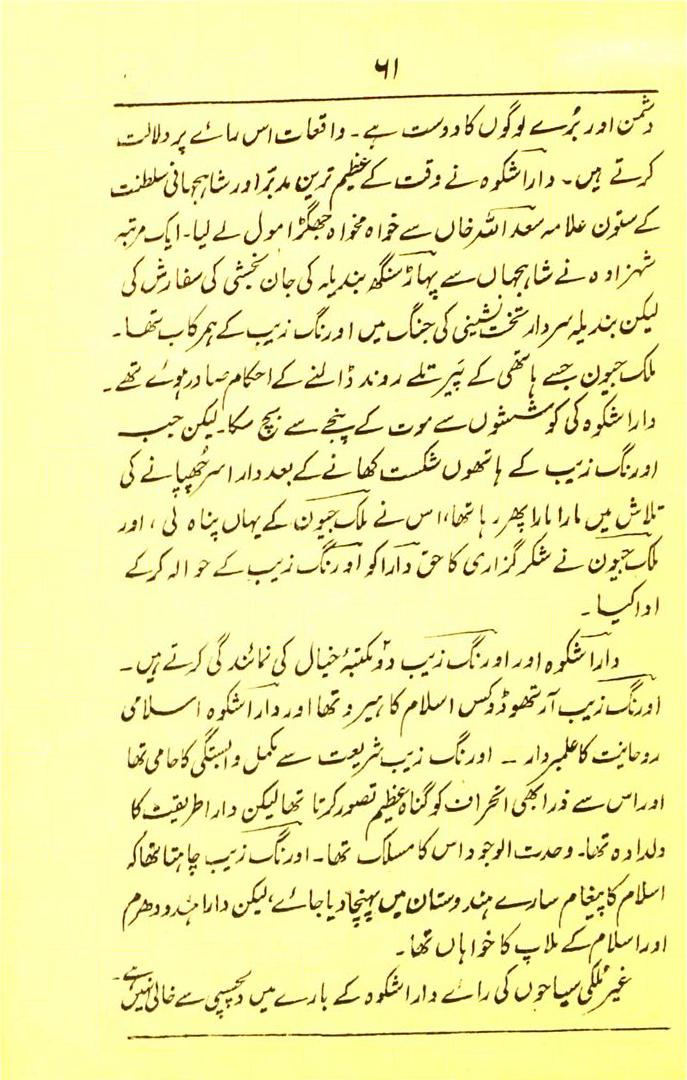 ۶۱
دشمن اور بُرے لوگوں کا دوست ہے۔ واقعات اس رائے پر دلالت
کرتے ہیں۔ داراشکوہ نے وقت کے عظیم ترین مدبّر اور شاہجہانی سلطنت
کے ستون علامہ سعد اللہ خاں سے خواہ مخواہ جھگڑا مول لے لیا۔ ایک مرتبہ
شہزادہ نے شاہجہاں سے پہاڑ سنگھ بندیلہ کی جان بخشی کی سفارش کی
لیکن بندیلہ سردار تخت نشینی کی جنگ میں اورنگ زیب کے ہمرکاب تھا۔
ملک جیون جسے ہاتھی کے پَیر تلے روند ڈالنے کے احکام صادر ہوئے تھے۔
داراشکوہ کی کوششوں سے موت کے پنجے سے بچ سکا۔ لیکن جب
اورنگ زیب کے ہاتھوں شکست کھانے کے بعد دارا سر چھپانے کی
تلاش میں مارا مارا پھر رہا تھا، اس نے ملک جیون کے یہاں پناہ لی، اور
ملک جیون نے شکرگزاری کا حق دارا کو اورنگ زیب کے حوالہ کرکے
ادا کیا۔
داراشکوہ اور اورنگ زیب دو مکتبۂ خیال کی نمائندگی کرتے ہیں۔
اورنگ زیب آرتھوڈوکس اسلام کا ہیرو تھا اور داراشکوہ اسلامی
روحانیت کا علمبردار ۔ اورنگ زیب شریعت سے مکمل وابستگی کا حامی تھا
اور اس سے ذرا بھی انحراف کو گناہ عظیم تصور کرتا تھا لیکن دارا طریقت کا
دلدادہ تھا۔ وحدت الوجود اس کا مسلک تھا۔ اورنگ زیب چاہتا تھا کہ
اسلام کا پیغام سارے ہندوستان میں پہنچا دیا جائے، لیکن دارا ہندو دھرم
اور اسلام کے ملاپ کا خواہاں تھا۔
غیر مُلکی سیاحوں کی رائے داراشکوہ کے بارے میں دلچسپی سے خالی نہیں ہے۔